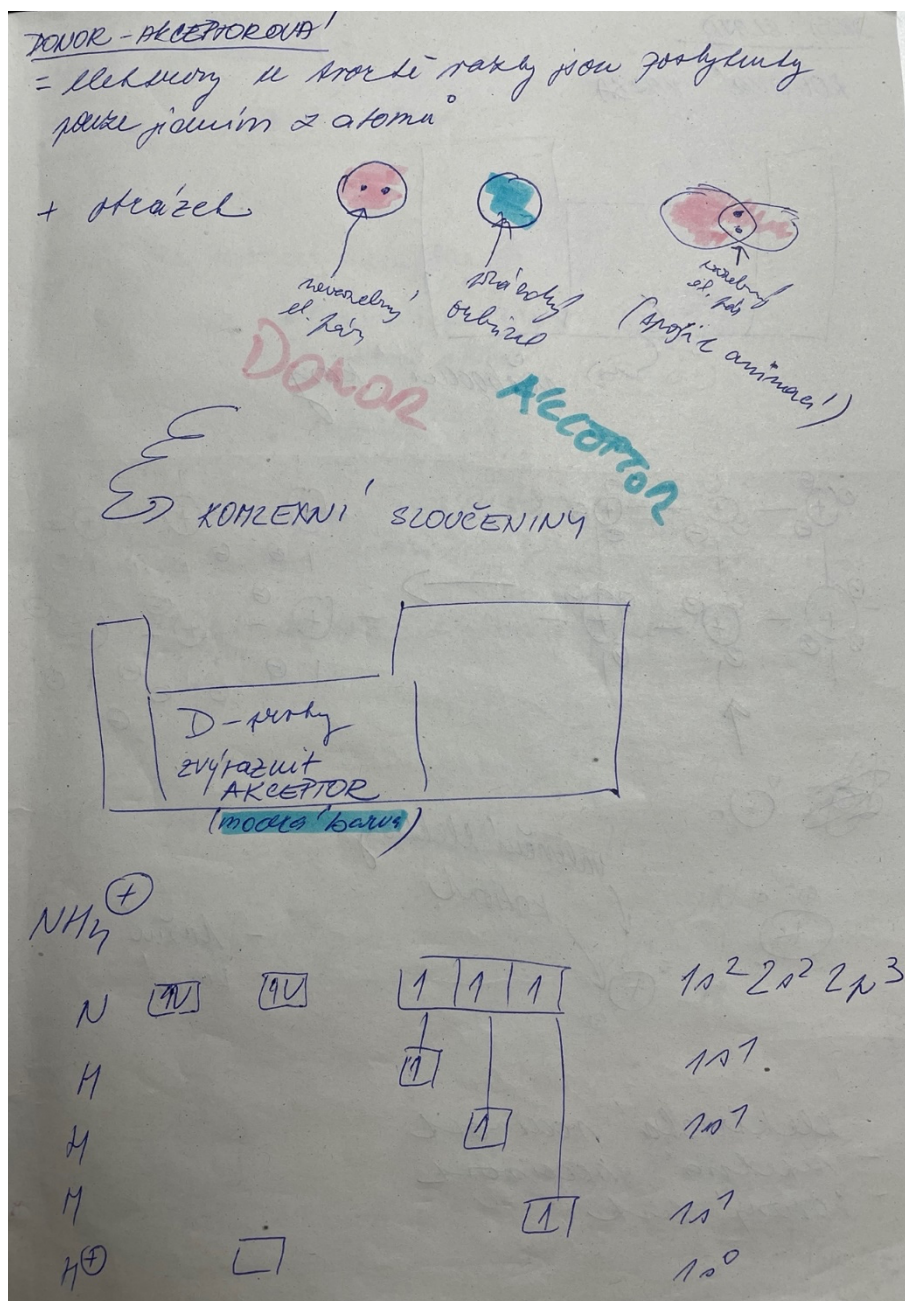 DONOR-AKCEPTOROVÁ
= elektrony k tvorbě vazby jsou poskytnuty
pouze jedním z atomů
+ obrázek
nevazebný
el. pár
prázdný
orbital
vazebný
el. pár
(spojit animací)
DONOR
AKCEPTOR
KOMLEXNÍ SLOUČENINY
D-prvky
zvýraznit
AKCEPTOR
(modrá barva)
NH4 +
N 1 1 1 1s2 2s2 2p3
H 1 1s1
H 1 1s1
H 1 1s1
H+ 1s0